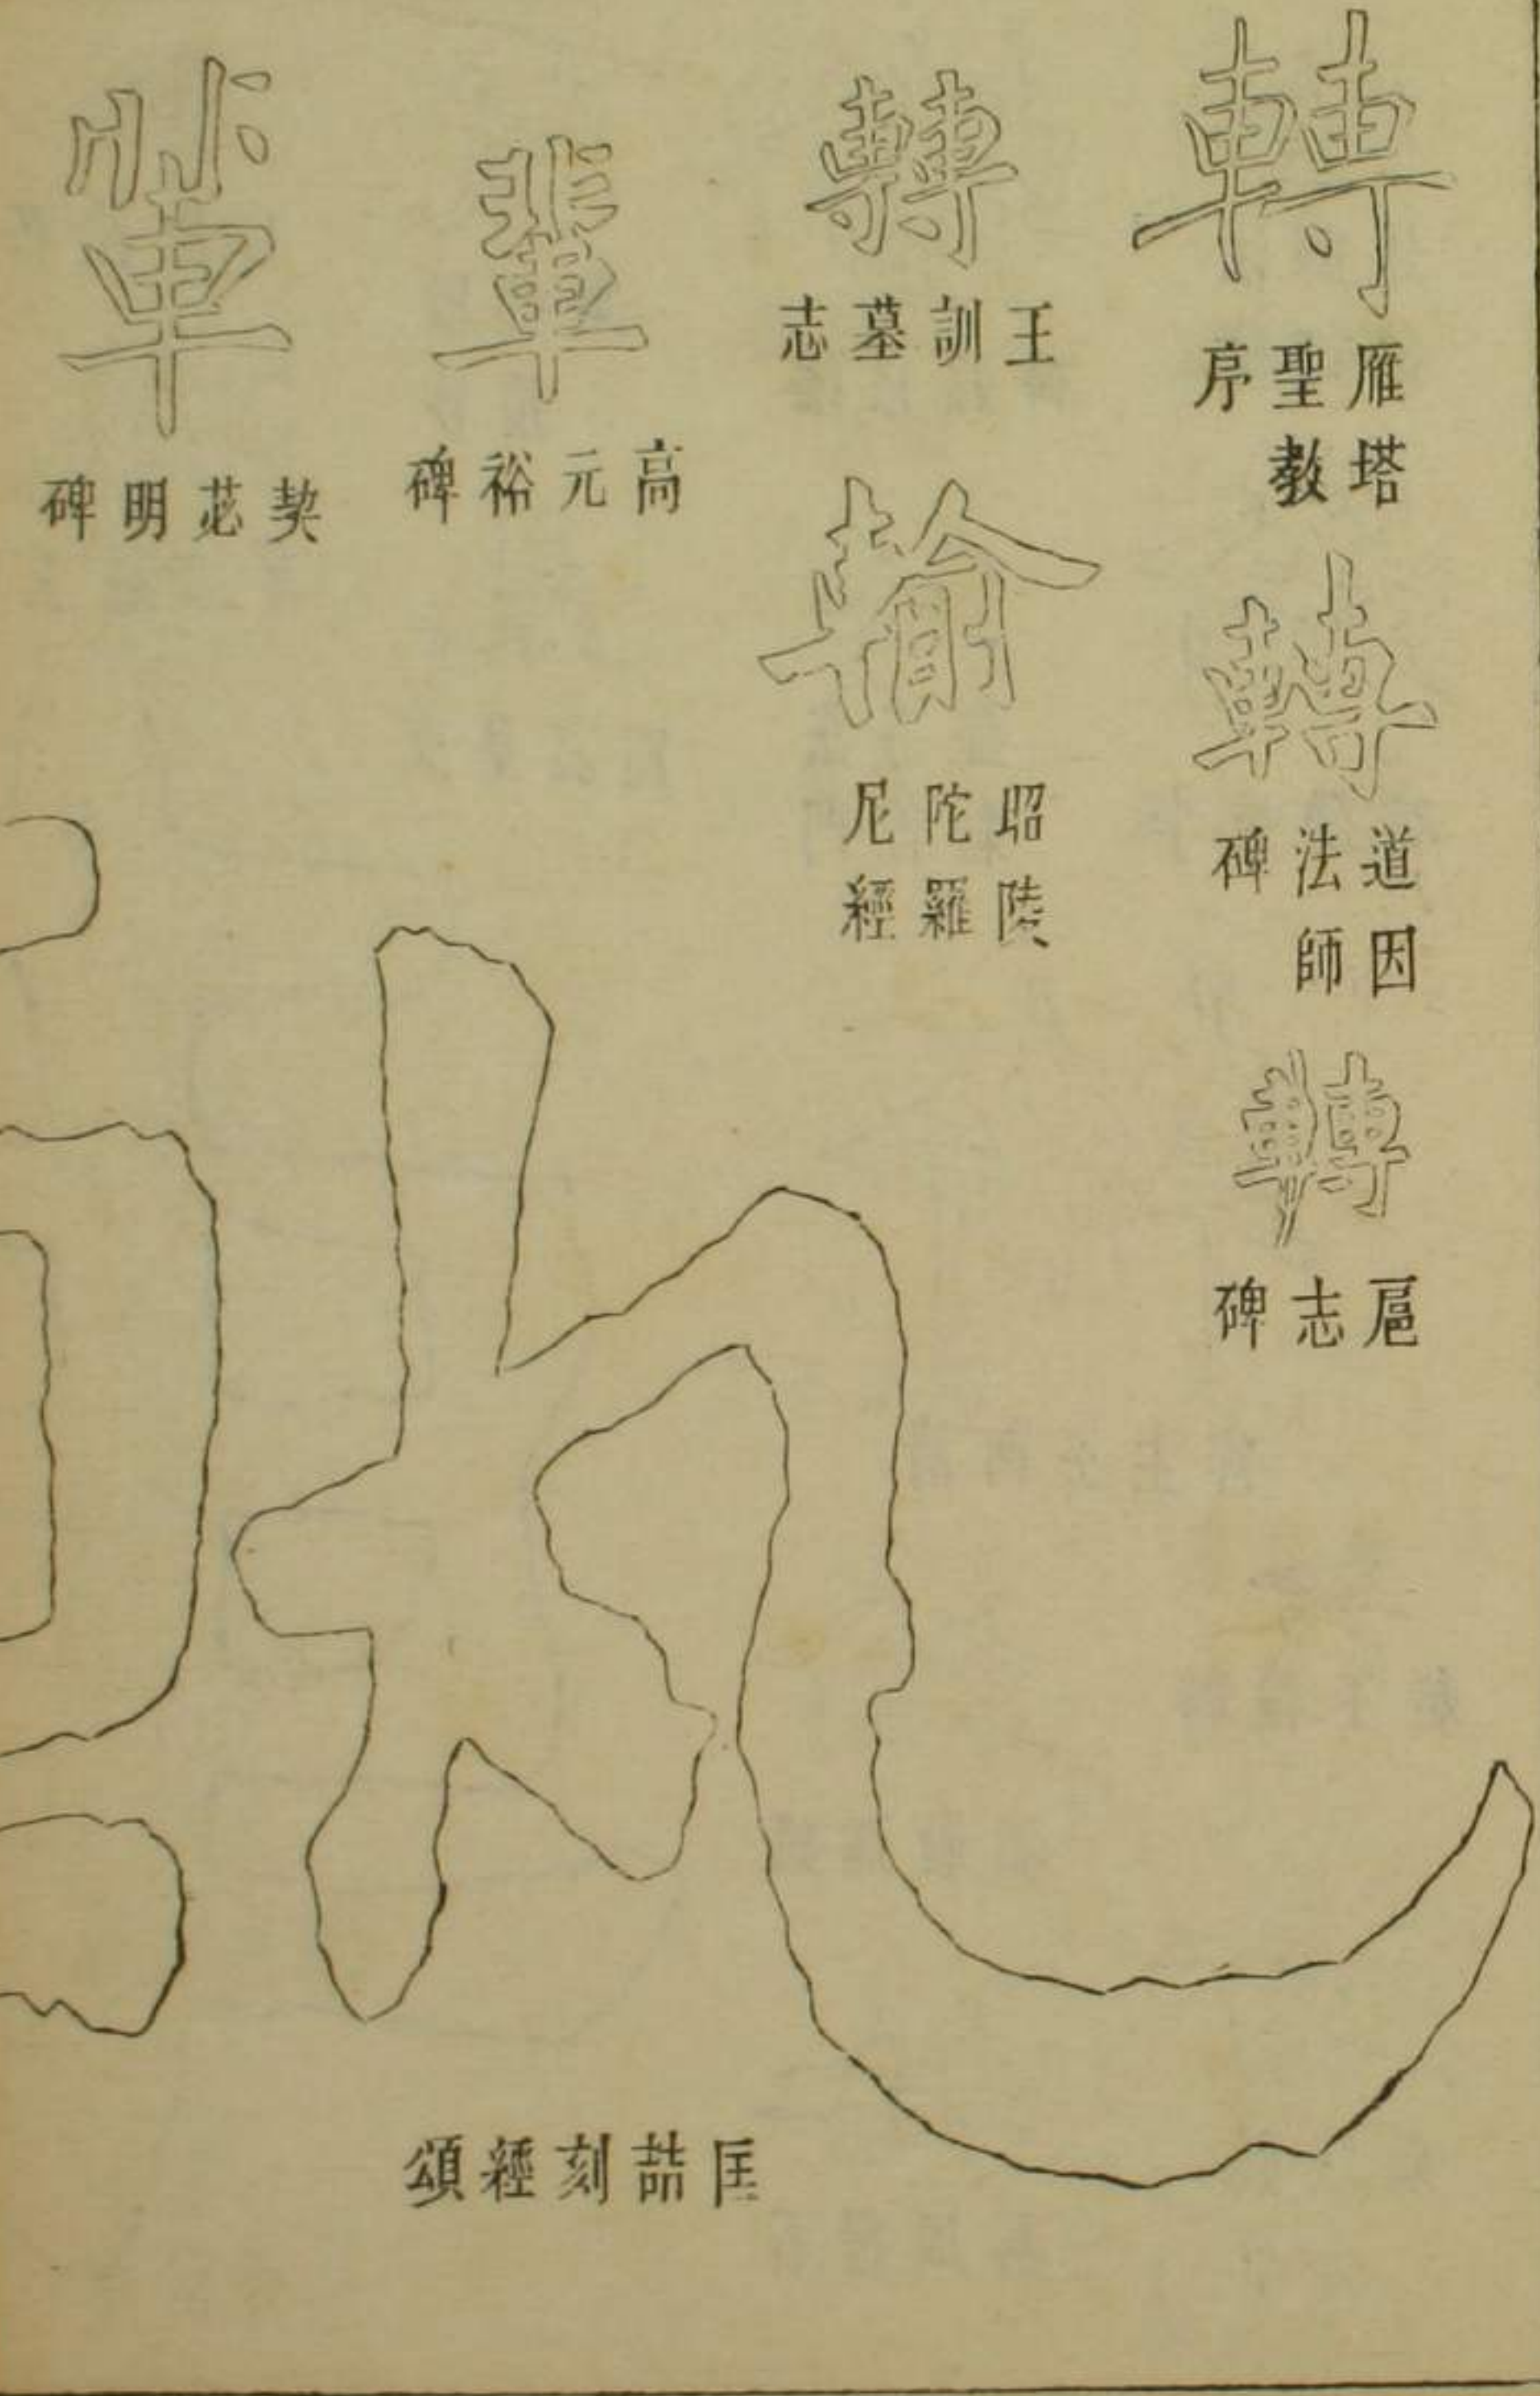 轉
雁塔聖教序
轉
道因法師碑
轉
扈志碑
轉
王訓墓志
輸
昭陵陀羅尼經
輩
高元裕碑
輩
契苾明碑
匡喆刻經頌